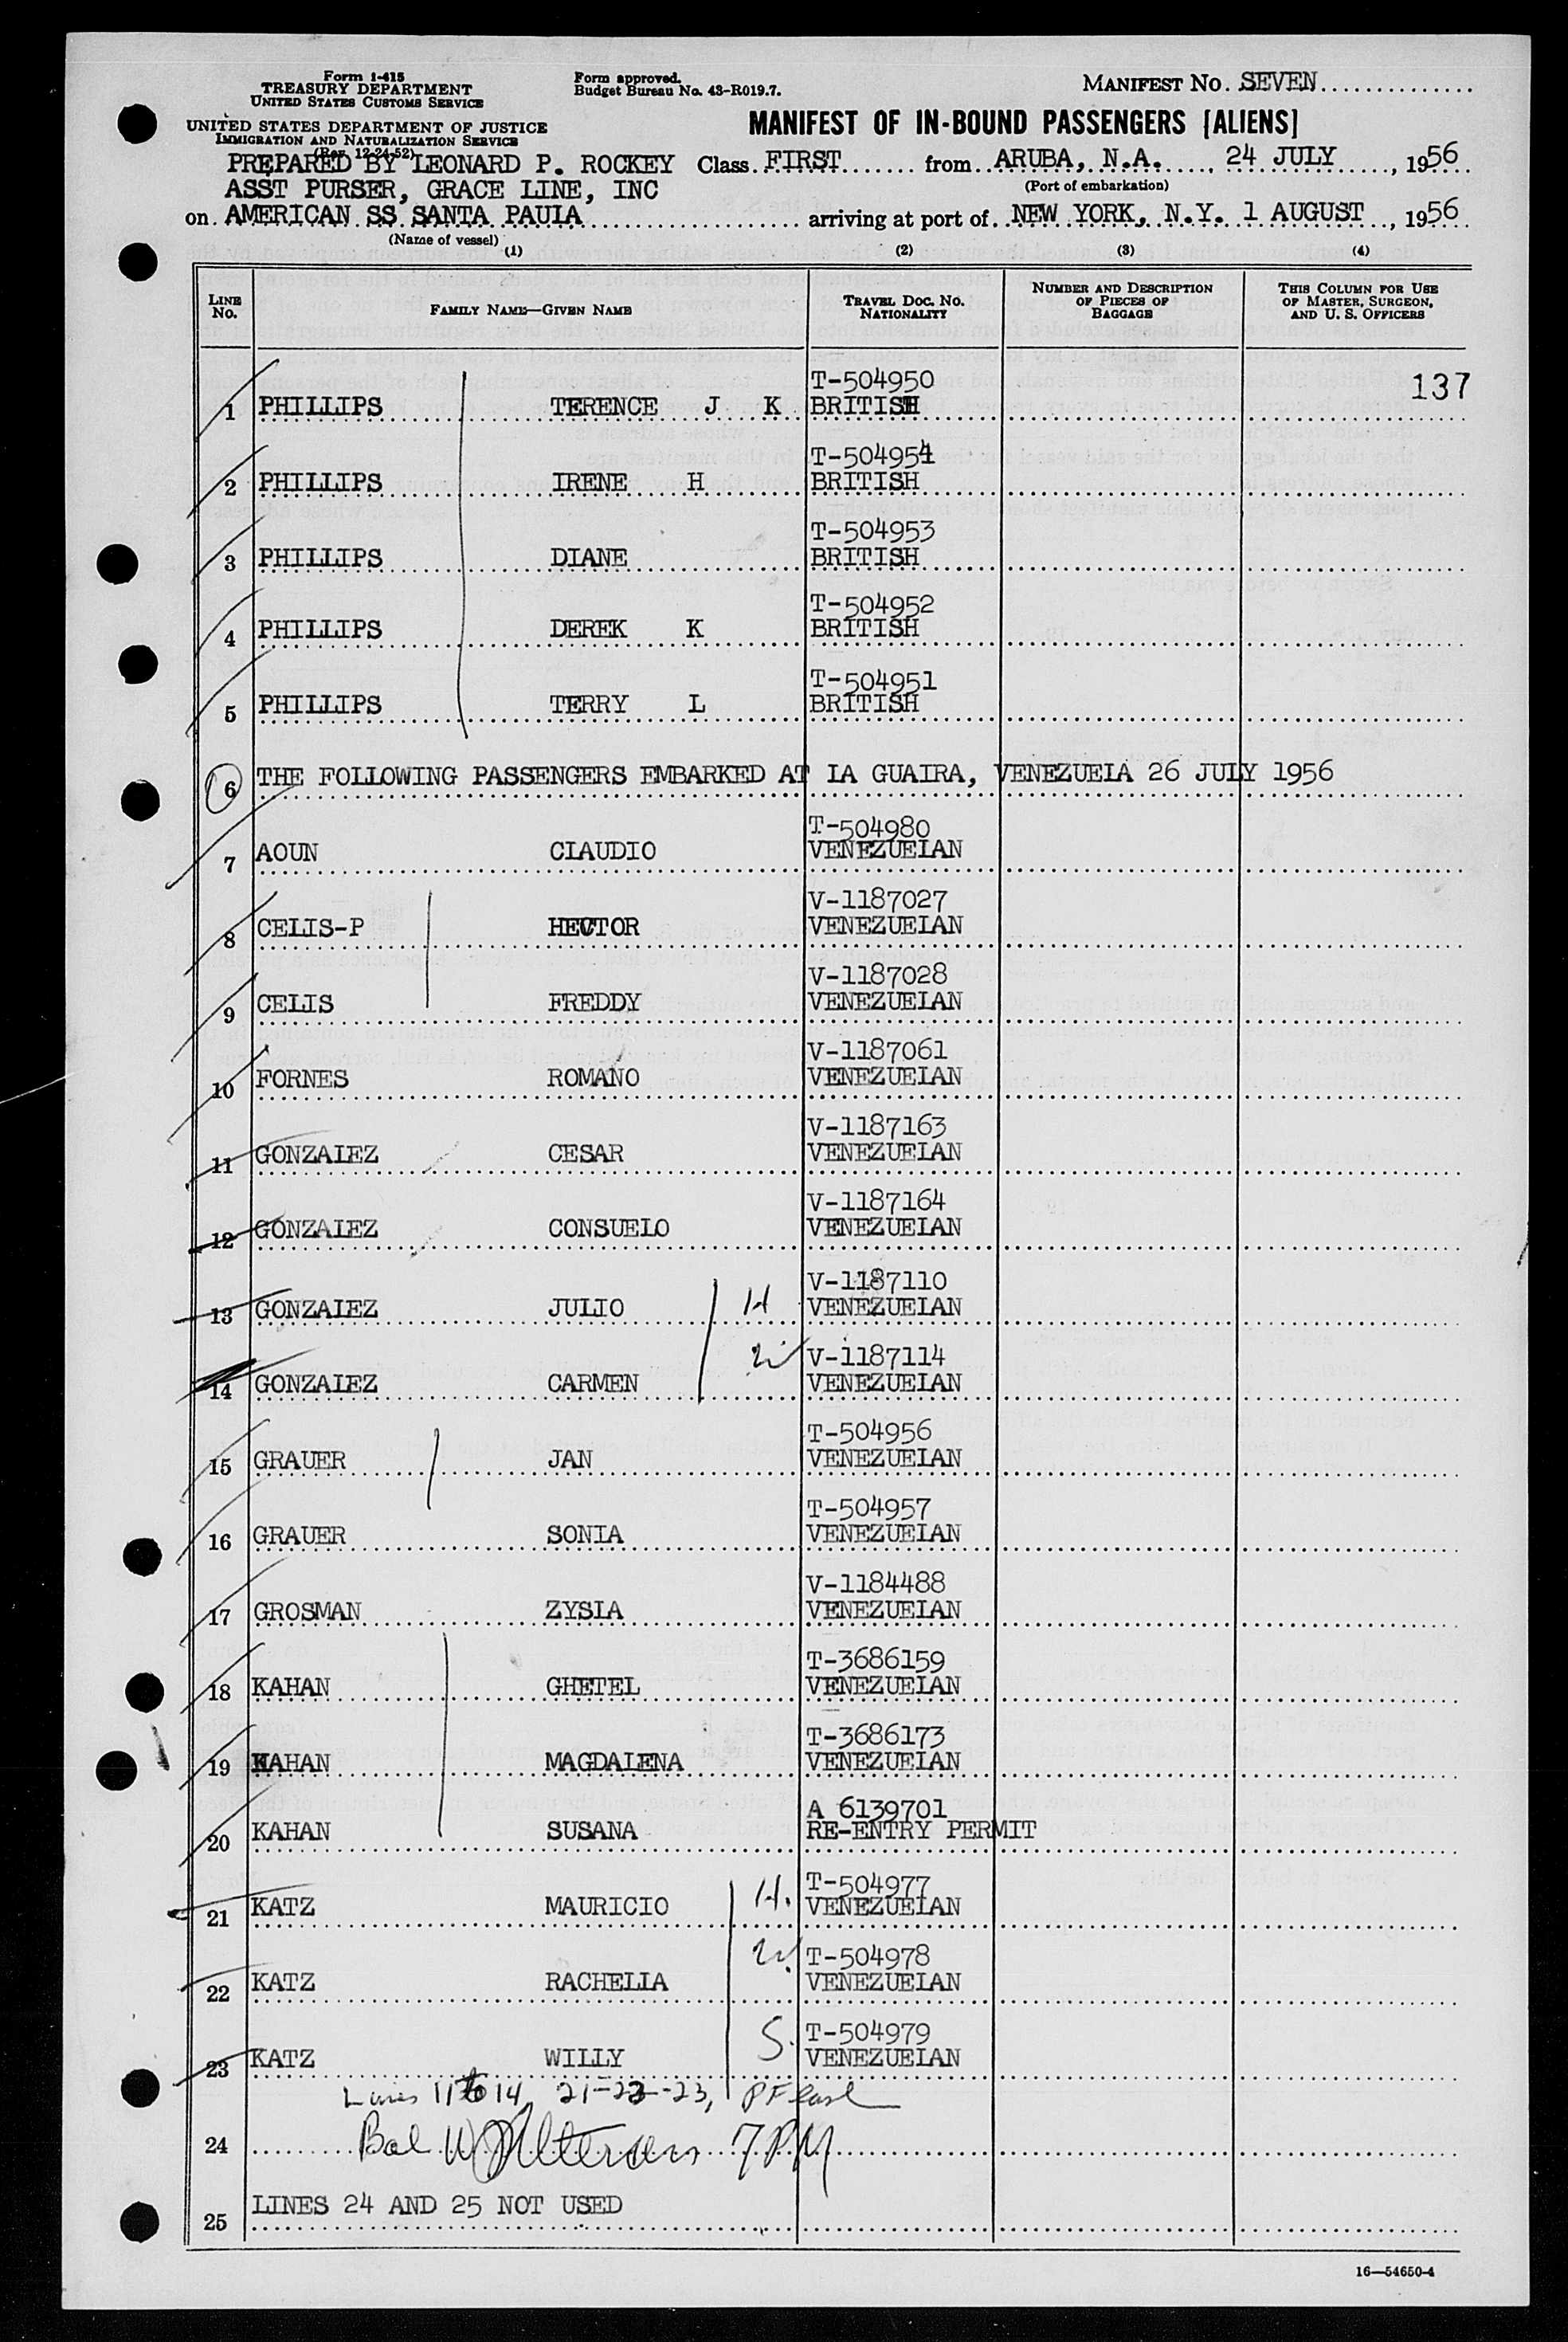 Form 1-415
TREASURY DEPARTMENT
UNITED STATES CUSTOMS SERVICE
UNITED STATES DEPARTMENT OF JUSTICE
IMMIGRATION AND NATURALIZATION SERVICE
(Rev. 12-24-52)
Form approved.
Budget Bureau No. 43-R019.7.
MANIFEST NO. SEVEN
MANIFEST OF IN-BOUND PASSENGERS [ALIENS]
PREPARED BY LEONARD P. ROCKEY Class FIRST from ARUBA, N.A. 24 JULY, 1956
(Port of embarkation)
ASST PURSER, GRACE LINE, INC
on AMERICAN SS SANTA PAULA arriving at port of NEW YORK, N.Y. 1 AUGUST, 1956
(Name of vessel)
(1) (2) (3) (4)
LINE NO. FAMILY NAME—GIVEN NAME TRAVEL DOC. NO. NATIONALITY NUMBER AND DESCRIPTION OF PIECES OF BAGGAGE THIS COLUMN FOR USE OF MASTER, SURGEON, AND U. S. OFFICERS
137
T-504950
1 PHILLIPS TERENCE J K BRITISH
T-504954
2 PHILLIPS IRENE H BRITISH
T-504953
3 PHILLIPS DIANE BRITISH
T-504952
4 PHILLIPS DEREK K BRITISH
T-504951
5 PHILLIPS TERRY L BRITISH
6 THE FOLLOWING PASSENGERS EMBARKED AT LA GUAIRA, VENEZUELA 26 JULY 1956
T-504980
7 AOUN CLAUDIO VENEZUELAN
V-1187027
8 CELIS-P HECTOR VENEZUELAN
V-1187028
9 CELIS FREDDY VENEZUELAN
V-1187061
10 FORNES ROMANO VENEZUELAN
V-1187163
11 GONZALEZ CESAR VENEZUELAN
V-1187164
12 GONZALEZ CONSUELO VENEZUELAN
V-1187110
13 GONZALEZ JULIO H VENEZUELAN
V-1187114
14 GONZALEZ CARMEN W VENEZUELAN
T-504956
15 GRAUER JAN VENEZUELAN
T-504957
16 GRAUER SONIA VENEZUELAN
V-1184488
17 GROSMAN ZYSLA VENEZUELAN
T-3686159
18 KAHAN GHETEL VENEZUELAN
T-3686173
19 KAHAN MAGDALENA VENEZUELAN
A 6139701
20 KAHAN SUSANA RE-ENTRY PERMIT
T-504977
21 KATZ MAURICIO H. VENEZUELAN
T-504978
22 KATZ RACHELLA W. VENEZUELAN
T-504979
23 KATZ WILLY S. VENEZUELAN
Lines 11 to 14, 21-22-23,
24 Bal 7 PM
25 LINES 24 AND 25 NOT USED
16—54650-4